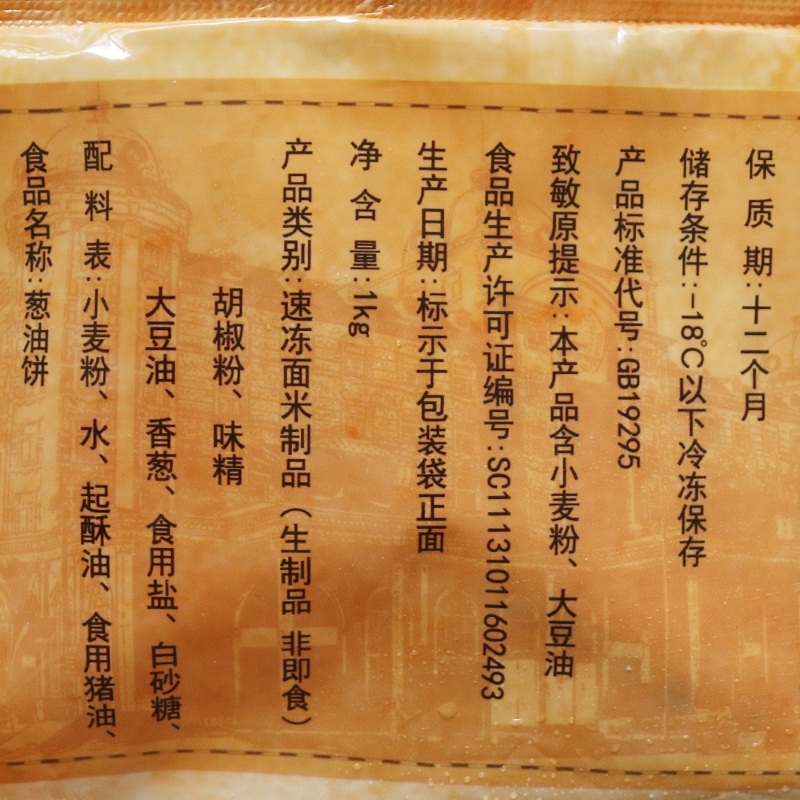 食品名称:葱油饼
配料表:小麦粉、水、起酥油、食用猪油、
大豆油、香葱、食用盐、白砂糖、
胡椒粉、味精
产品类别:速冻面米制品（生制品 非即食）
净含量:1kg
生产日期:标示于包装袋正面
食品生产许可证编号:SC11131011602493
致敏原提示:本产品含小麦粉、大豆油
产品标准代号:GB19295
储存条件:-18℃以下冷冻保存
保质期:十二个月